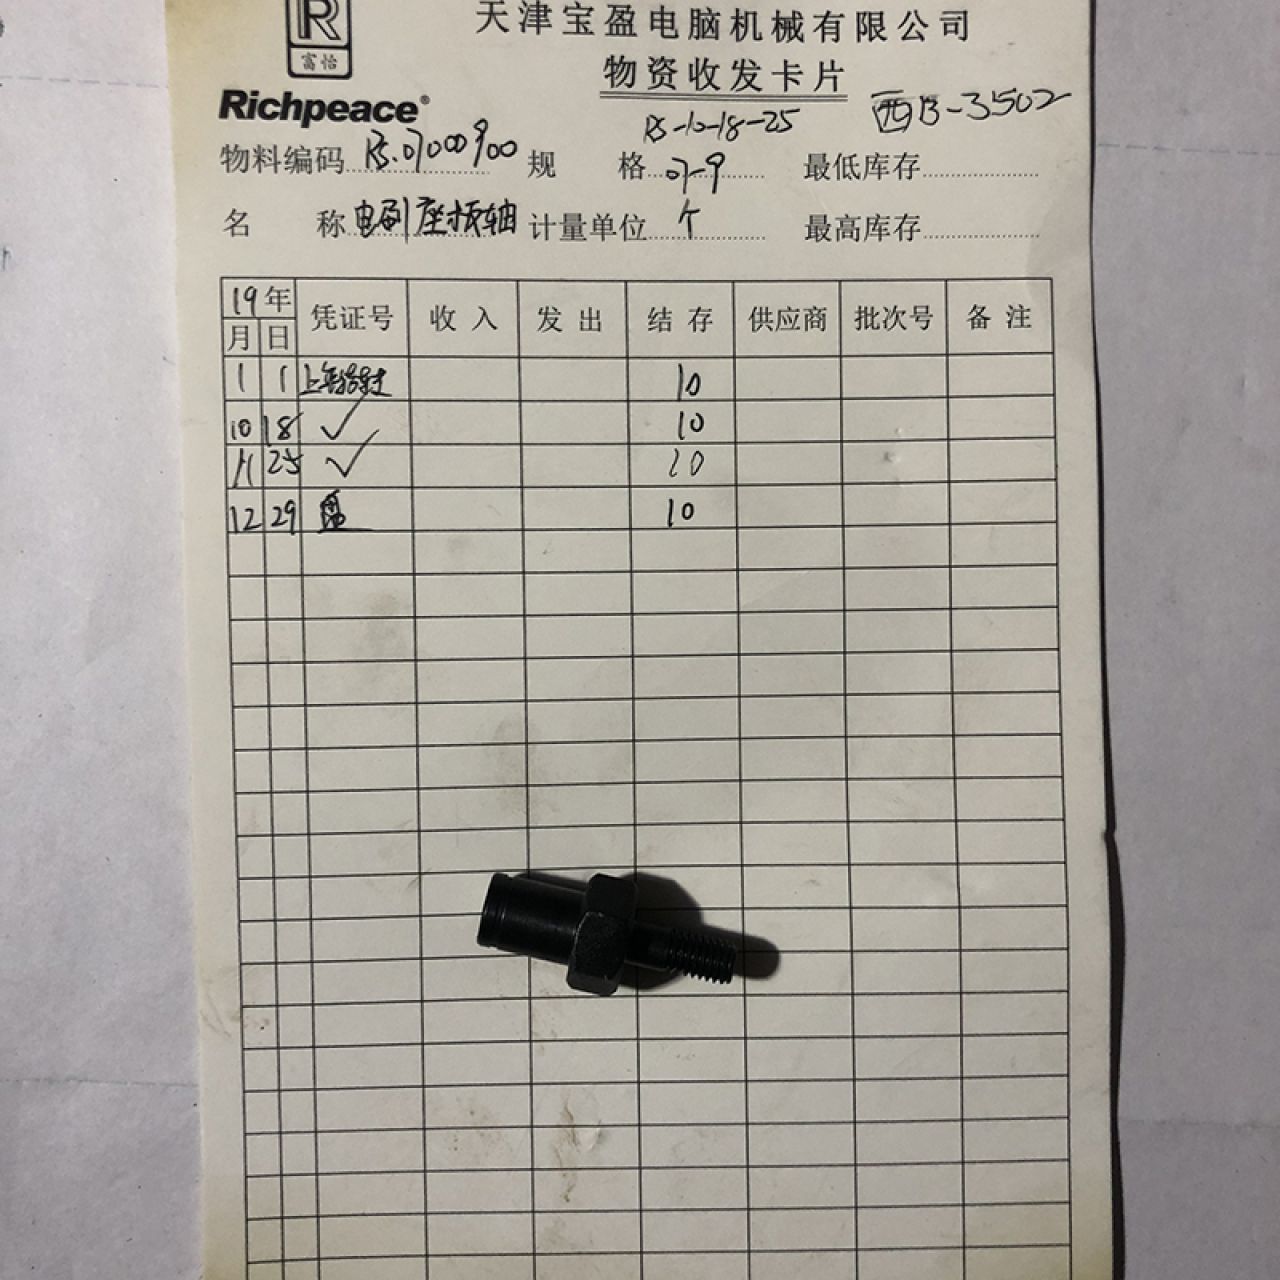 R
富怡
天津宝盈电脑机械有限公司
物资收发卡片
Richpeace®
BS-10-18-25
西B-3502
物料编码 BS.07000900 规 格 07-9 最低库存
名 称 电刷座板轴 计量单位 个 最高库存
19年 凭证号 收入 发出 结存 供应商 批次号 备注
月 日
1 1 上年结转 10
10 18 ✓ 10
11 25 ✓ 10
12 29 盘 10